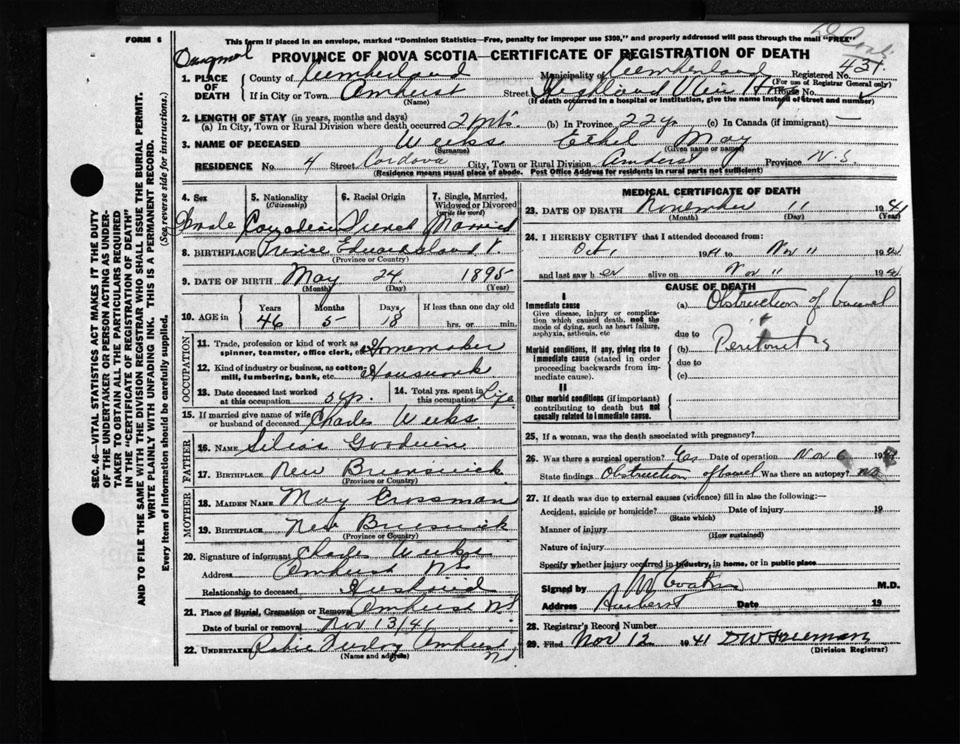 FORM 6
This form if placed in an envelope, marked "Dominion Statistics—Free, penalty for improper use $300," and properly addressed will pass through the mail "FREE"
PROVINCE OF NOVA SCOTIA—CERTIFICATE OF REGISTRATION OF DEATH
1. PLACE OF DEATH
County of Cumberland Municipality of Cumberland Registered No. 431
(For use of Registrar General only)
If in City or Town Amherst Street Highland View House No.
(Name) (If death occurred in a hospital or institution, give the name instead of street and number)
2. LENGTH OF STAY (in years, months and days)
(a) In City, Town or Rural Division where death occurred (b) In Province 22 yr (c) In Canada (if immigrant) —
3. NAME OF DECEASED Weeks Ethel May
(Surname) (Given name or names)
RESIDENCE No. 4 Street Cordova City, Town or Rural Division Amherst Province N.S.
(Residence means usual place of abode. Post Office Address for residents in rural parts not sufficient)
4. Sex
5. Nationality (Citizenship)
6. Racial Origin
7. Single, Married, Widowed or Divorced (write the word)
Female Canadian Married
8. BIRTHPLACE Prince Edward Island
(Province or Country)
9. DATE OF BIRTH May 24 1895
(Month) (Day) (Year)
10. AGE Years Months Days If less than one day old
46 5 18 hrs. or min.
OCCUPATION
11. Trade, profession or kind of work as spinner, teamster, office clerk, etc. Homemaker
12. Kind of industry or business, as cotton mill, lumbering, bank, etc. Housework
13. Date deceased last worked at this occupation
14. Total yrs. spent in this occupation Life
15. If married give name of wife or husband of deceased Charles Weeks
FATHER
16. NAME Silias Goodwin
17. BIRTHPLACE New Brunswick
(Province or Country)
MOTHER
18. MAIDEN NAME May Crossman
19. BIRTHPLACE New Brunswick
(Province or Country)
20. Signature of informant Charles Weeks
Address Amherst NS
Relationship to deceased Husband
21. Place of Burial, Cremation or Removal Amherst NS
Date of burial or removal Nov 13/41
22. UNDERTAKER Amherst NS
(Name and address)
MEDICAL CERTIFICATE OF DEATH
23. DATE OF DEATH November 11 1941
(Month) (Day) (Year)
24. I HEREBY CERTIFY that I attended deceased from:
Oct 1941 to Nov 11 1941
and last saw her alive on Nov 11 1941
CAUSE OF DEATH
I
Immediate cause
Give disease, injury or complication which caused death, not the mode of dying, such as heart failure, asphyxia, asthenia, etc
(a) Obstruction of bowel
due to
Morbid conditions, if any, giving rise to immediate cause (stated in order proceeding backwards from immediate cause).
(b) Peritonitis
due to
(c)
II
Other morbid conditions (if important) contributing to death but not causally related to immediate cause.
25. If a woman, was the death associated with pregnancy?
26. Was there a surgical operation? Yes Date of operation Nov 1941
State findings Obstruction of bowel Was there an autopsy? no
27. If death was due to external causes (violence) fill in also the following:—
Accident, suicide or homicide? Date of injury 19
(State which)
Manner of injury
(How sustained)
Nature of injury
Specify whether injury occurred in industry, in home, or in public place
Signed by M.D.
Address Amherst Date 19
28. Registrar's Record Number
29. Filed Nov 12 1941 DW Freeman
(Division Registrar)
SEC. 46—VITAL STATISTICS ACT MAKES IT THE DUTY
OF THE UNDERTAKER OR PERSON ACTING AS UNDERTAKER
TO OBTAIN ALL THE PARTICULARS REQUIRED
IN THE "CERTIFICATE OF REGISTRATION OF DEATH"
AND TO FILE THE SAME WITH THE DIVISION REGISTRAR WHO SHALL ISSUE THE BURIAL PERMIT.
WRITE PLAINLY WITH UNFADING INK. THIS IS A PERMANENT RECORD.
Every item of information should be carefully supplied. (See reverse side for instructions.)